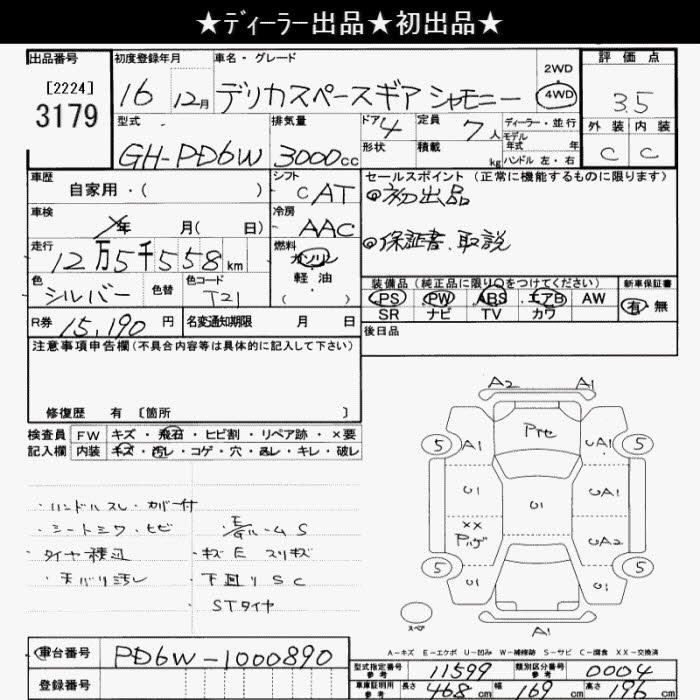 ★ディーラー出品★初出品★
出品番号
[2224]
3179
初度登録年月
16 12月
車名・グレード
デリカスペースギア シャモニー
2WD
4WD
評価点
3.5
外装 内装
C C
型式
GH-PD6W
排気量
3000cc
ドア 4
形状
定員 7人
積載 kg
ディーラー・並行
モデル年式 年
ハンドル 左・右
車歴
自家用・( )
シフト
CAT
セールスポイント (正常に機能するものに限ります)
◎初出品
◎保証書、取説
車検
年 月( 日)
冷房
AAC
走行
12万5千558km
燃料
ガソリン
軽油
( )
色
シルバー
色替
色コード
T21
装備品(純正品に限り○をつけてください)
PS PW ABS エアB AW
SR ナビ TV カワ
新車保証書
有 無
R券 15,190円
名変通知期限 月 日
後日品
注意事項申告欄(不具合内容等は具体的に記入して下さい)
修復歴 有 [箇所 ]
検査員
記入欄
FW キズ・飛石・ヒビ割・リペア跡・×要
内装 キズ・汚レ・コゲ・穴・スレ・キレ・破レ
・ハンドルスレ・カバー付
・シートシワ・ヒビ
・E/Gルーム S
・タイヤ積込
・キズ E スリキズ
・天バリ汚レ
・下廻り S C
STタイヤ
A2 A1
5 A1 Pte UA1 5
U1 U1 UA1
××
UA2
5 U1 U1 5
スペア
A1
A-キズ E-エクボ U-凹み W-補修跡 S-サビ C-腐食 XX-交換済
車台番号
PD6W-1000890
登録番号
型式指定番号
参考
11599
類別区分番号
参考
0004
車庫証明用
参考
長さ 468cm 幅 169cm 高さ 196cm